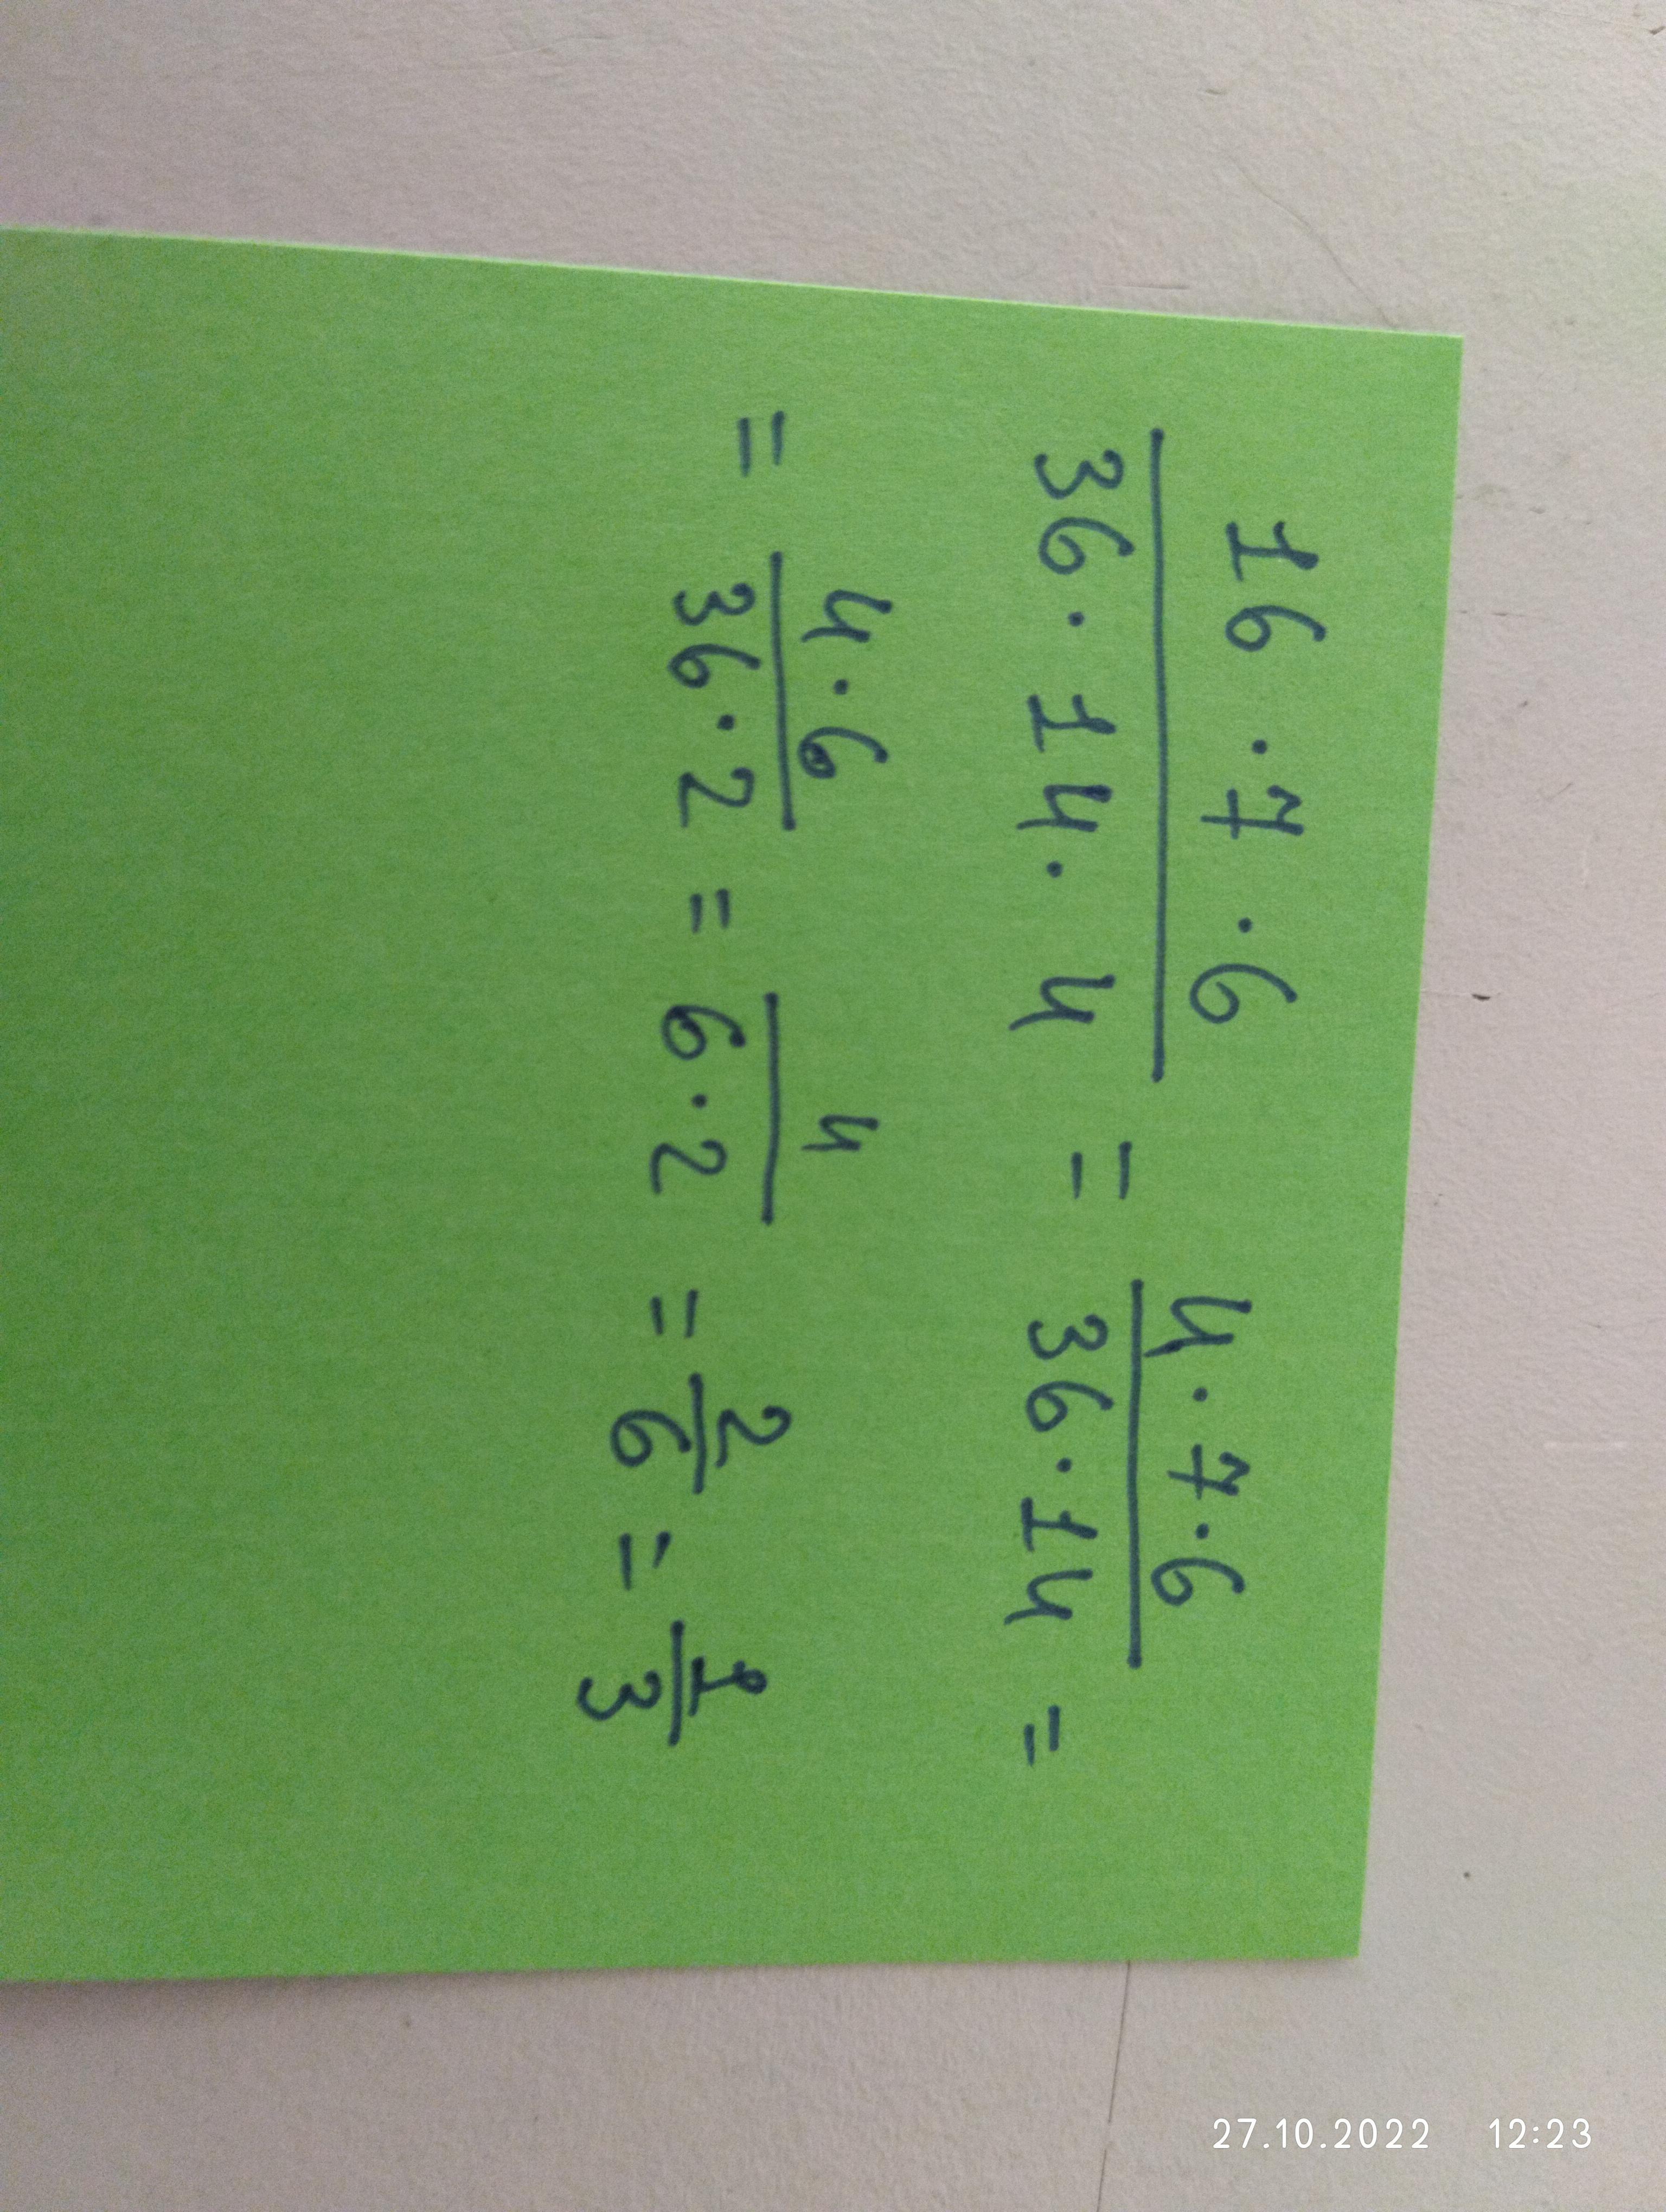 16 · 7 · 6 / 36 · 14 · 4 = 4 · 7 · 6 / 36 · 14 =
= 4 · 6 / 36 · 2 = 4 / 6 · 2 = 2 / 6 = 1 / 3
27.10.2022 12:23